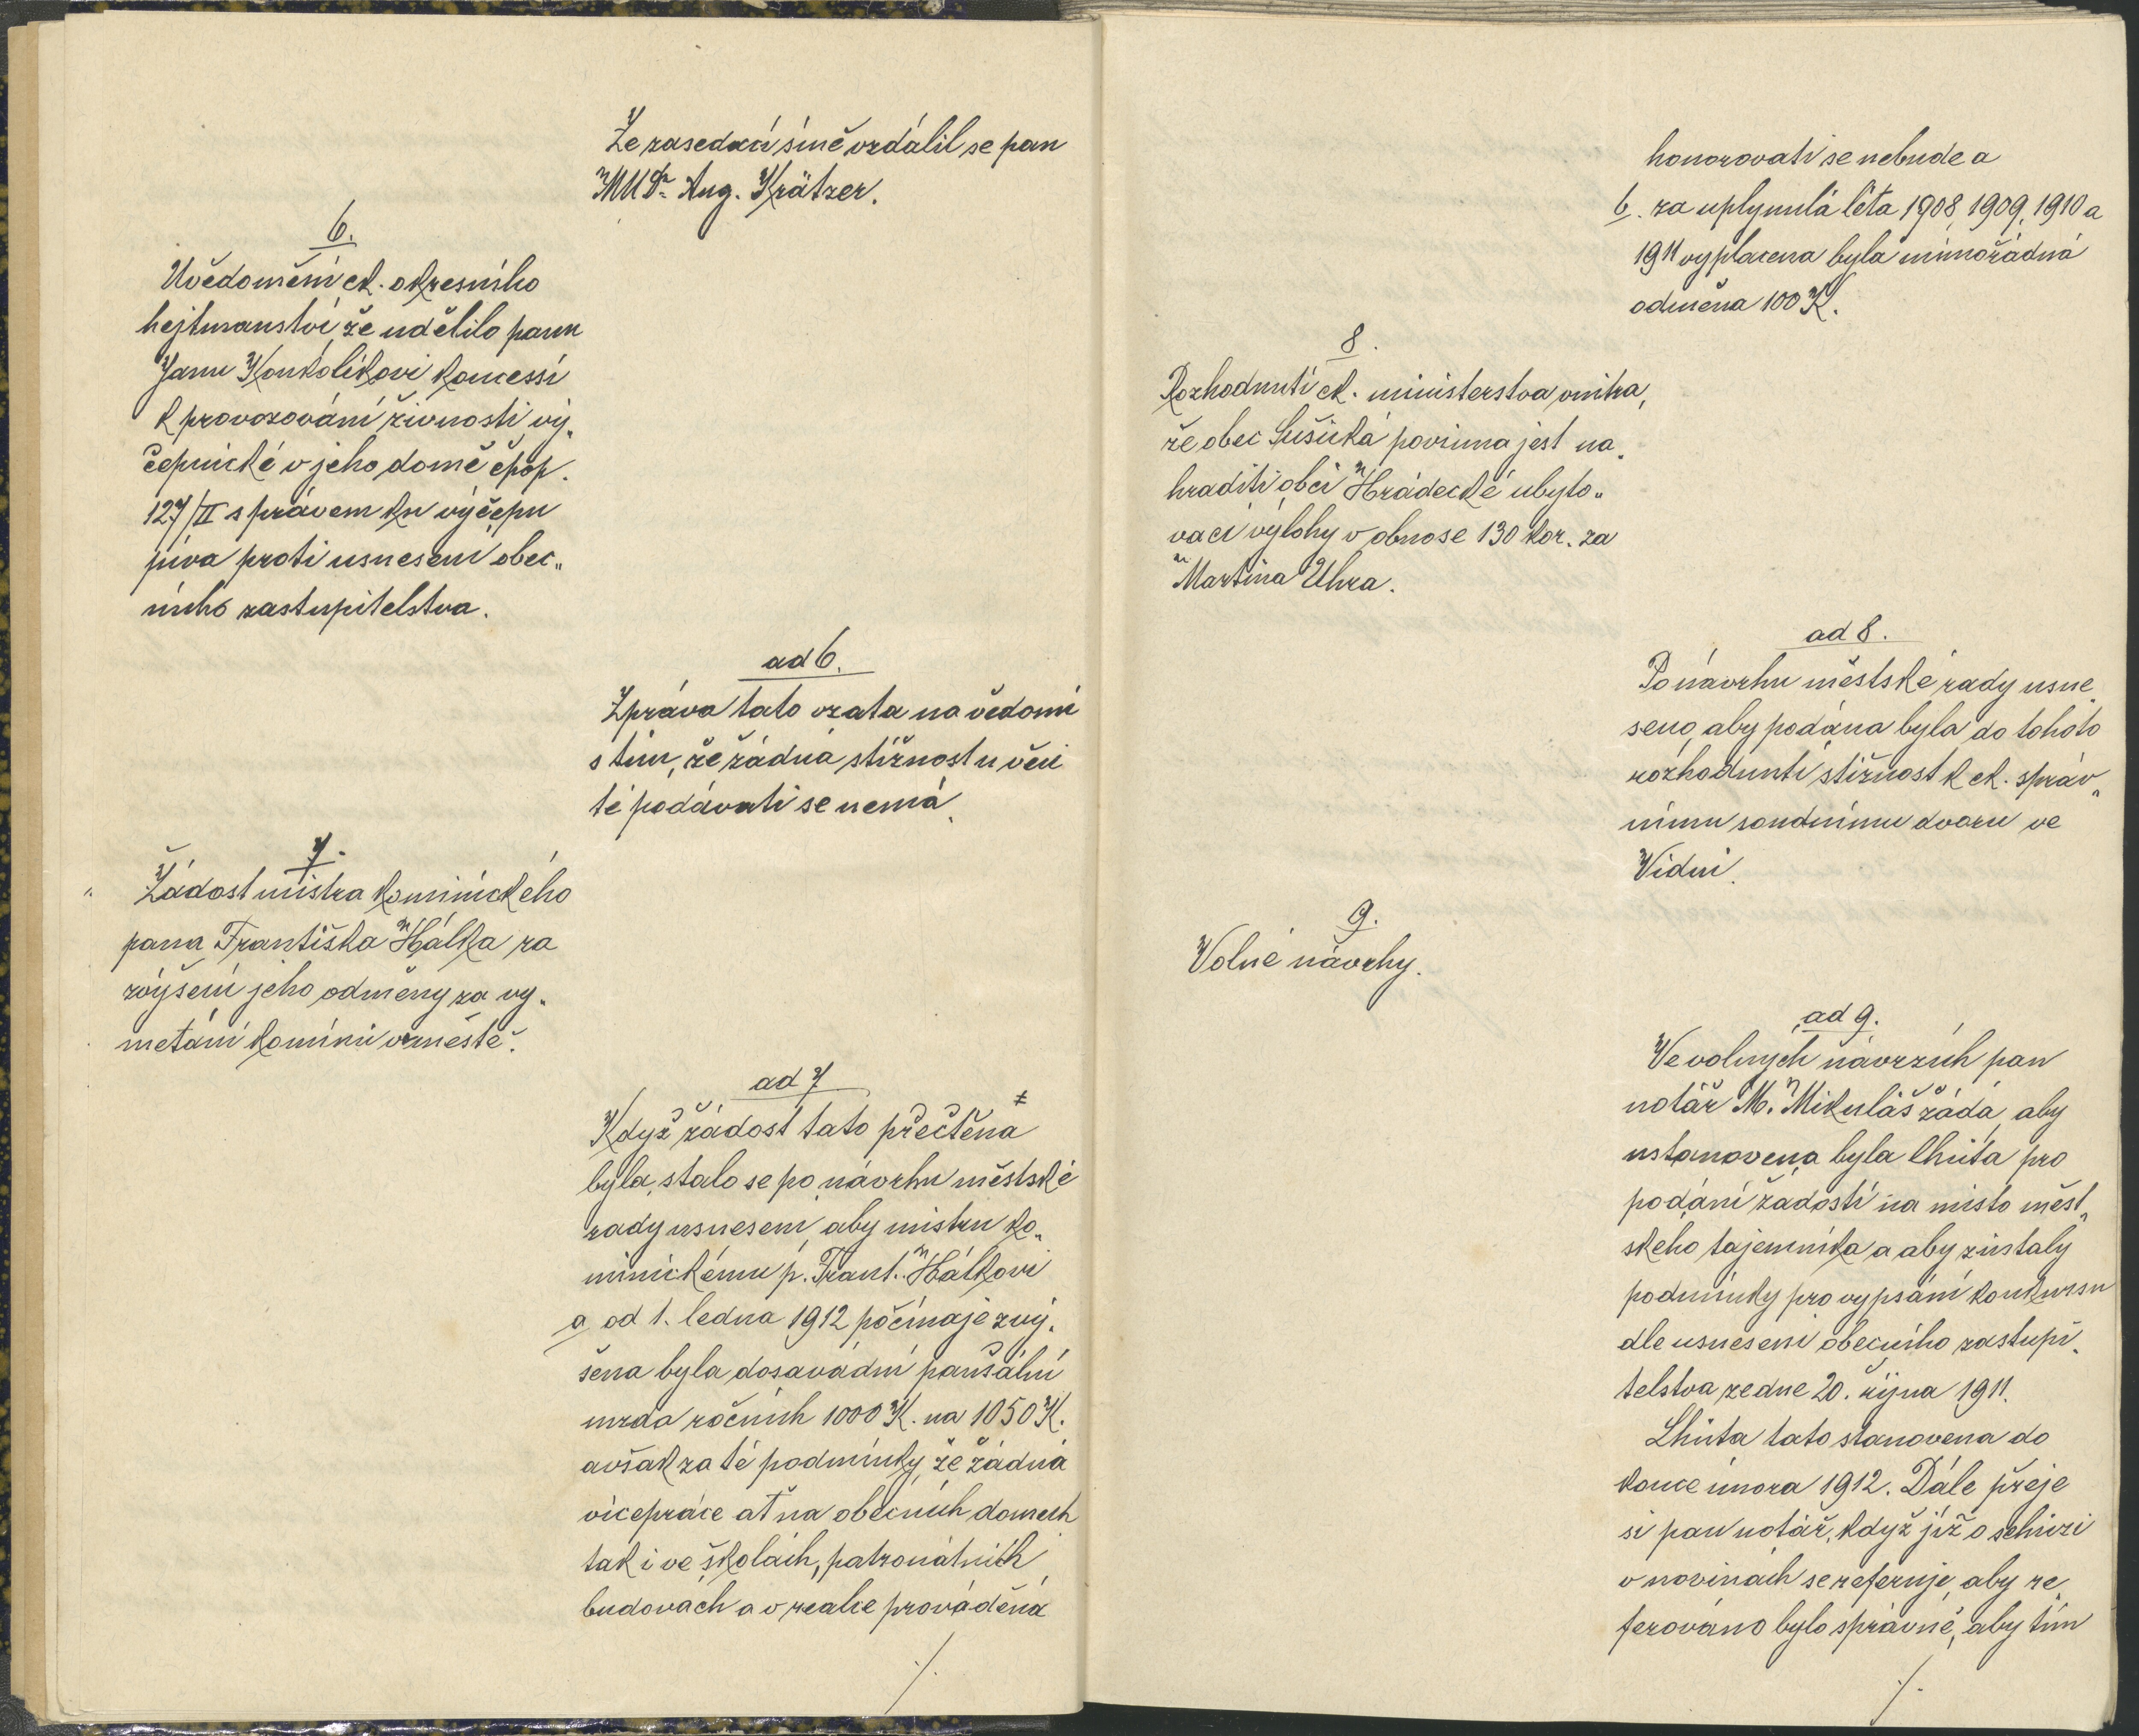 Ze zasedací síně vzdálil se pan
MUDr. Aug. Krätzer.
6.
Uvědomění ck. okresního
hejtmanství, že udělilo panu
Janu Konkolíkovi koncessi
k provozování živnosti vý„
čepnické v jeho domě čpop.
127/II s právem ku výčepu
piva proti usnesení obec„
ního zastupitelstva.
ad 6.
Zpráva tato vzata na vědomí
s tím, že žádná stížnost u věci
té podávati se nemá.
7.
Žádost mistra kominického
pana Františka Hálka za
zvýšení jeho odměny za vy„
metání komínů v městě.
ad 7
Když žádost tato přečtena
byla, stalo se po návrhu městské
rady usnesení, aby mistru ko„
minickému p. Frant. Hálkovi
a, od 1. ledna 1912 počínaje zvý„
šena byla dosavadní paušální
mzda ročních 1000 K. na 1050 K.
avšak za té podmínky, že žádná
vícepráce ať na obecních domech
tak i ve školách, patronátních
budovách a v realce prováděná
./.
honorovati se nebude a
b. za uplynulá léta 1908, 1909, 1910 a
1911 vyplacena byla mimořádná
odměna 100 K.
8.
Rozhodnutí ck. ministerstva vnitra,
že obec Sušická povinna jest na„
hraditi obci Hrádecké ubyto„
vací výlohy v obnose 130 kor. za
Martina Uhra.
ad 8.
Po návrhu městské rady usne„
seno, aby podána byla do tohoto
rozhodnutí stížnost k ck. správ„
nímu soudnímu dvoru ve
Vídni.
9.
Volné návrhy.
ad 9.
Ve volných návrzích pan
notář M. Mikuláš žádá, aby
ustanovena byla lhůta pro
podání žádostí na místo měst„
ského tajemníka a aby zůstaly
podmínky pro vypsání konkursu
dle usnesení obecního zastupi„
telstva ze dne 20. října 1911.
Lhůta tato stanovena do
konce února 1912. Dále přeje
si pan notář, když již o schůzi
v novinách se referuje, aby re„
ferováno bylo správně, aby tím
./.